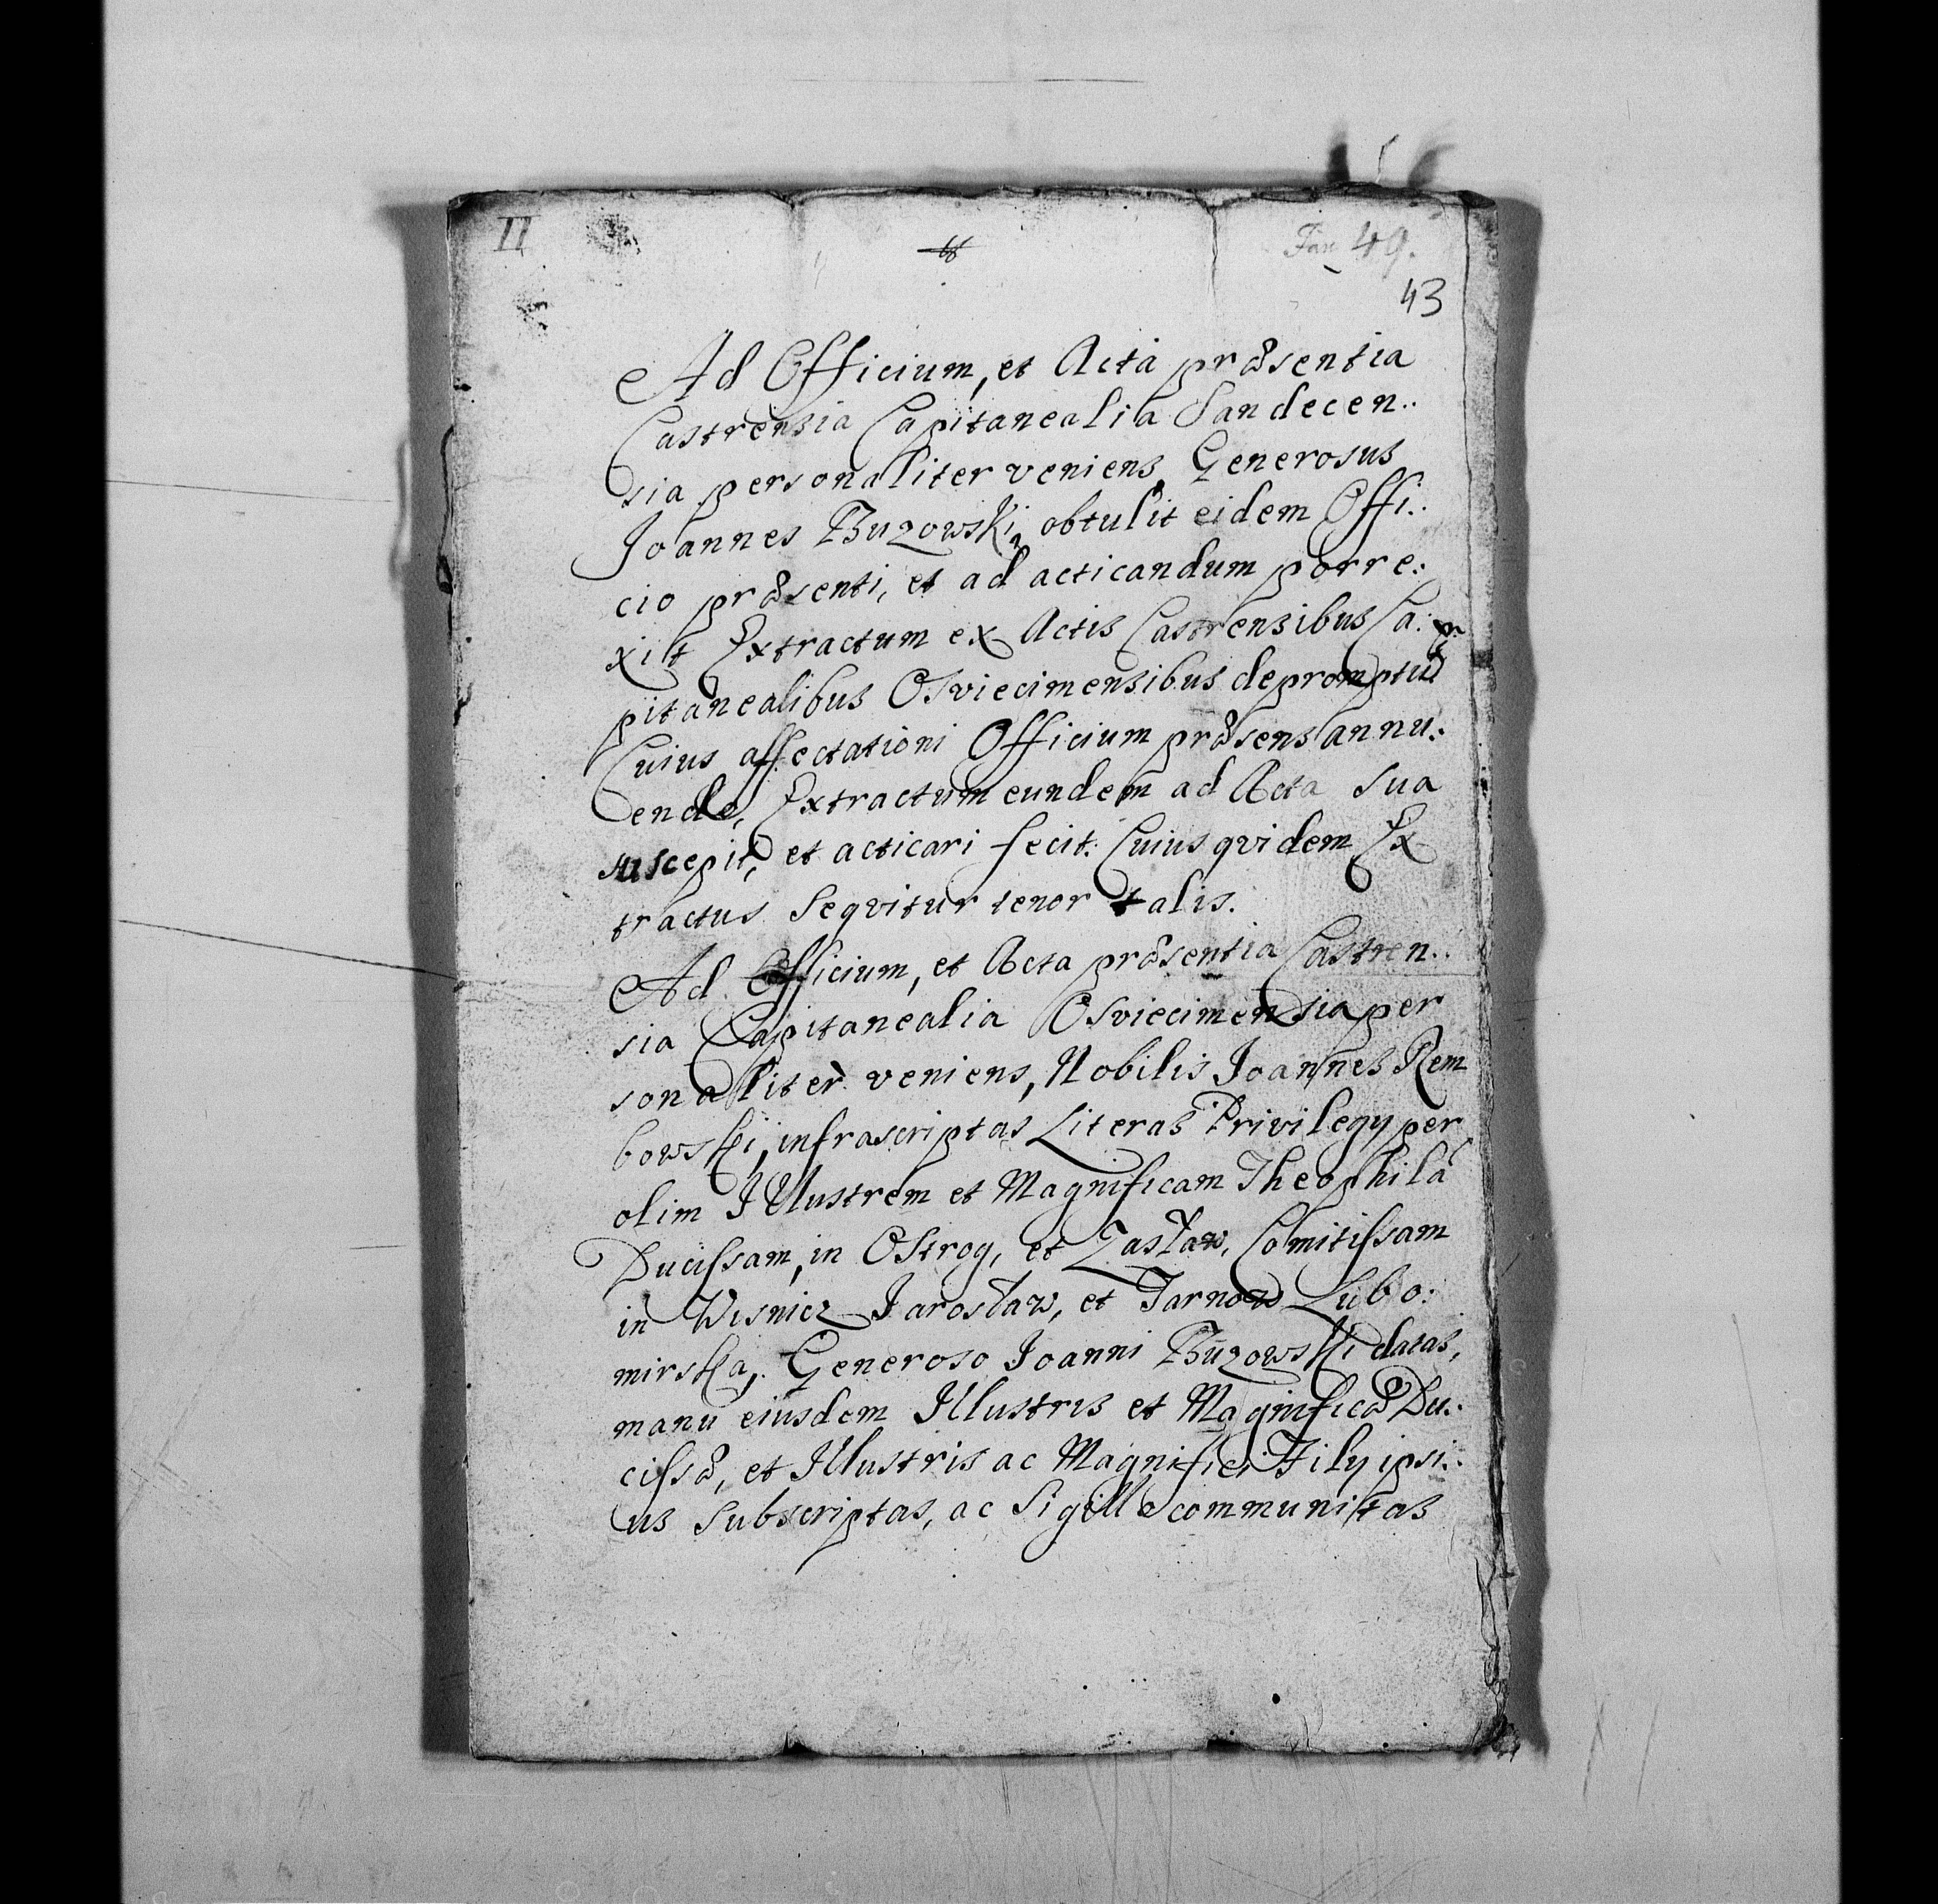 II
Fan 49.
43
Ad Officium, et Acta præsentia
Castrensia Capitanealia Sandecen:
sia personaliter veniens Generosus
Joannes Buzowski, obtulit eidem Offi:
cio præsenti, et ad acticandum porre:
xit Extractum ex Actis Castrensibus Ca:
pitanealibus Osviecimensibus depromptū
Cuius affectationi Officium præsens annu:
endo, Extractum eundem ad Acta sua
suscepit, et acticari fecit. Cuius qvidem Ex
tractus seqvitur tenor talis.
Ad Officium, et Acta præsentia Castren:
sia Capitanealia Osviecimensia per
sonaliter veniens, Nobilis Joannes Rem
bowski, infrascriptas Literas Privilegy per
olim Illustrem et Magnificam Theophilā
Ducissam, in Ostrog, et Zasław, Comitissam
in Wisnicz Jarosław, et Tarnow Lubo:
mirska, Generoso Joanni Buzowski datas,
manu eiusdem Illustris et Magnificæ Du:
cissæ, et Illustris ac Magnifici Fily ipsi:
us subscriptas, ac Sigillo communitas